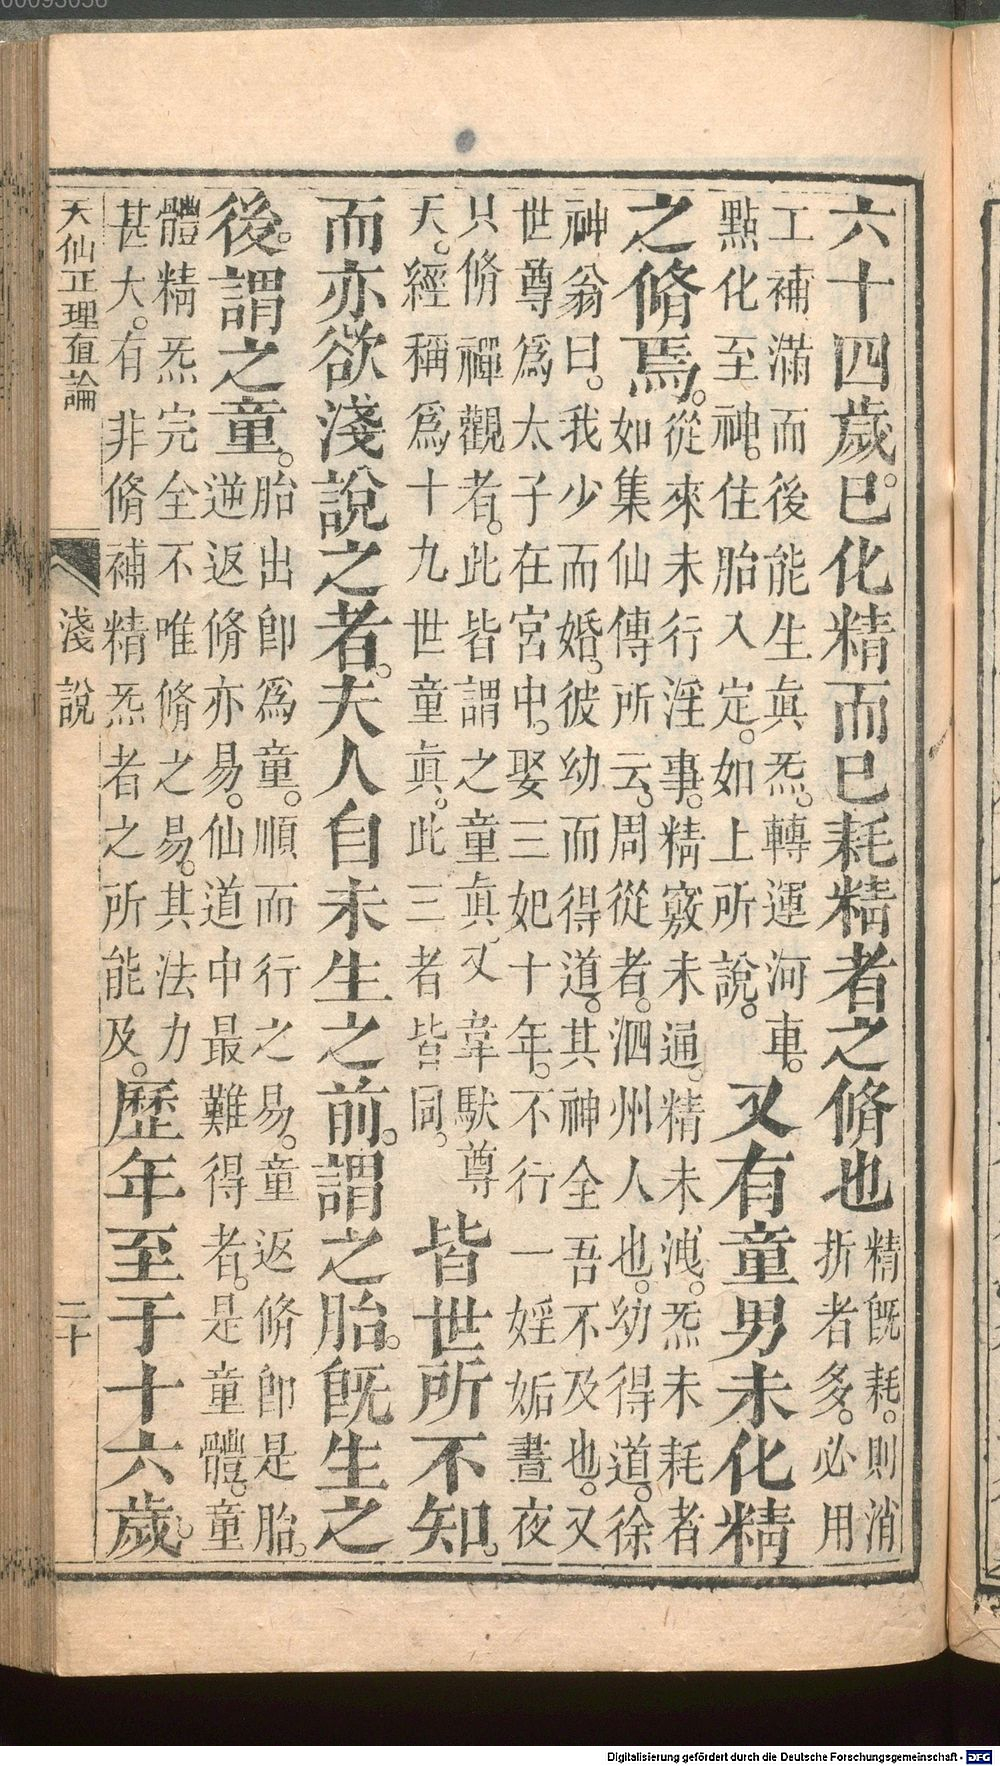 六十四歲。已化精而已耗精者之脩也精旣耗。則消
折者多。必用
工補滿而後能生眞炁。轉運河車。
點化至神。住胎入定。如上所說。又有童男未化精
之脩焉。從來未行淫事。精竅未通。精未洩。炁未耗者
如集仙傳所云。周從者。泗州人也。幼得道。徐
神翁曰。我少而婚。彼幼而得道。其神全吾不及也。又
世尊爲太子在宮中。娶三妃十年。不行一婬姤晝夜
只脩禪觀者。此皆謂之童眞。又韋馱尊
天。經稱爲十九世童眞。此三者皆同。皆世所不知。
而亦欲淺說之者。夫人自未生之前。謂之胎。旣生之
後。謂之童。胎出卽爲童。順而行之易。童返脩卽是胎。
逆返脩亦易。仙道中最難得者。是童體。童
體精炁完全不唯脩之易。其法力
甚大。有非脩補精炁者之所能及。歷年至于十六歲。
天仙正理直論 淺說 二十
00093056
Digitalisierung gefördert durch die Deutsche Forschungsgemeinschaft - DFG